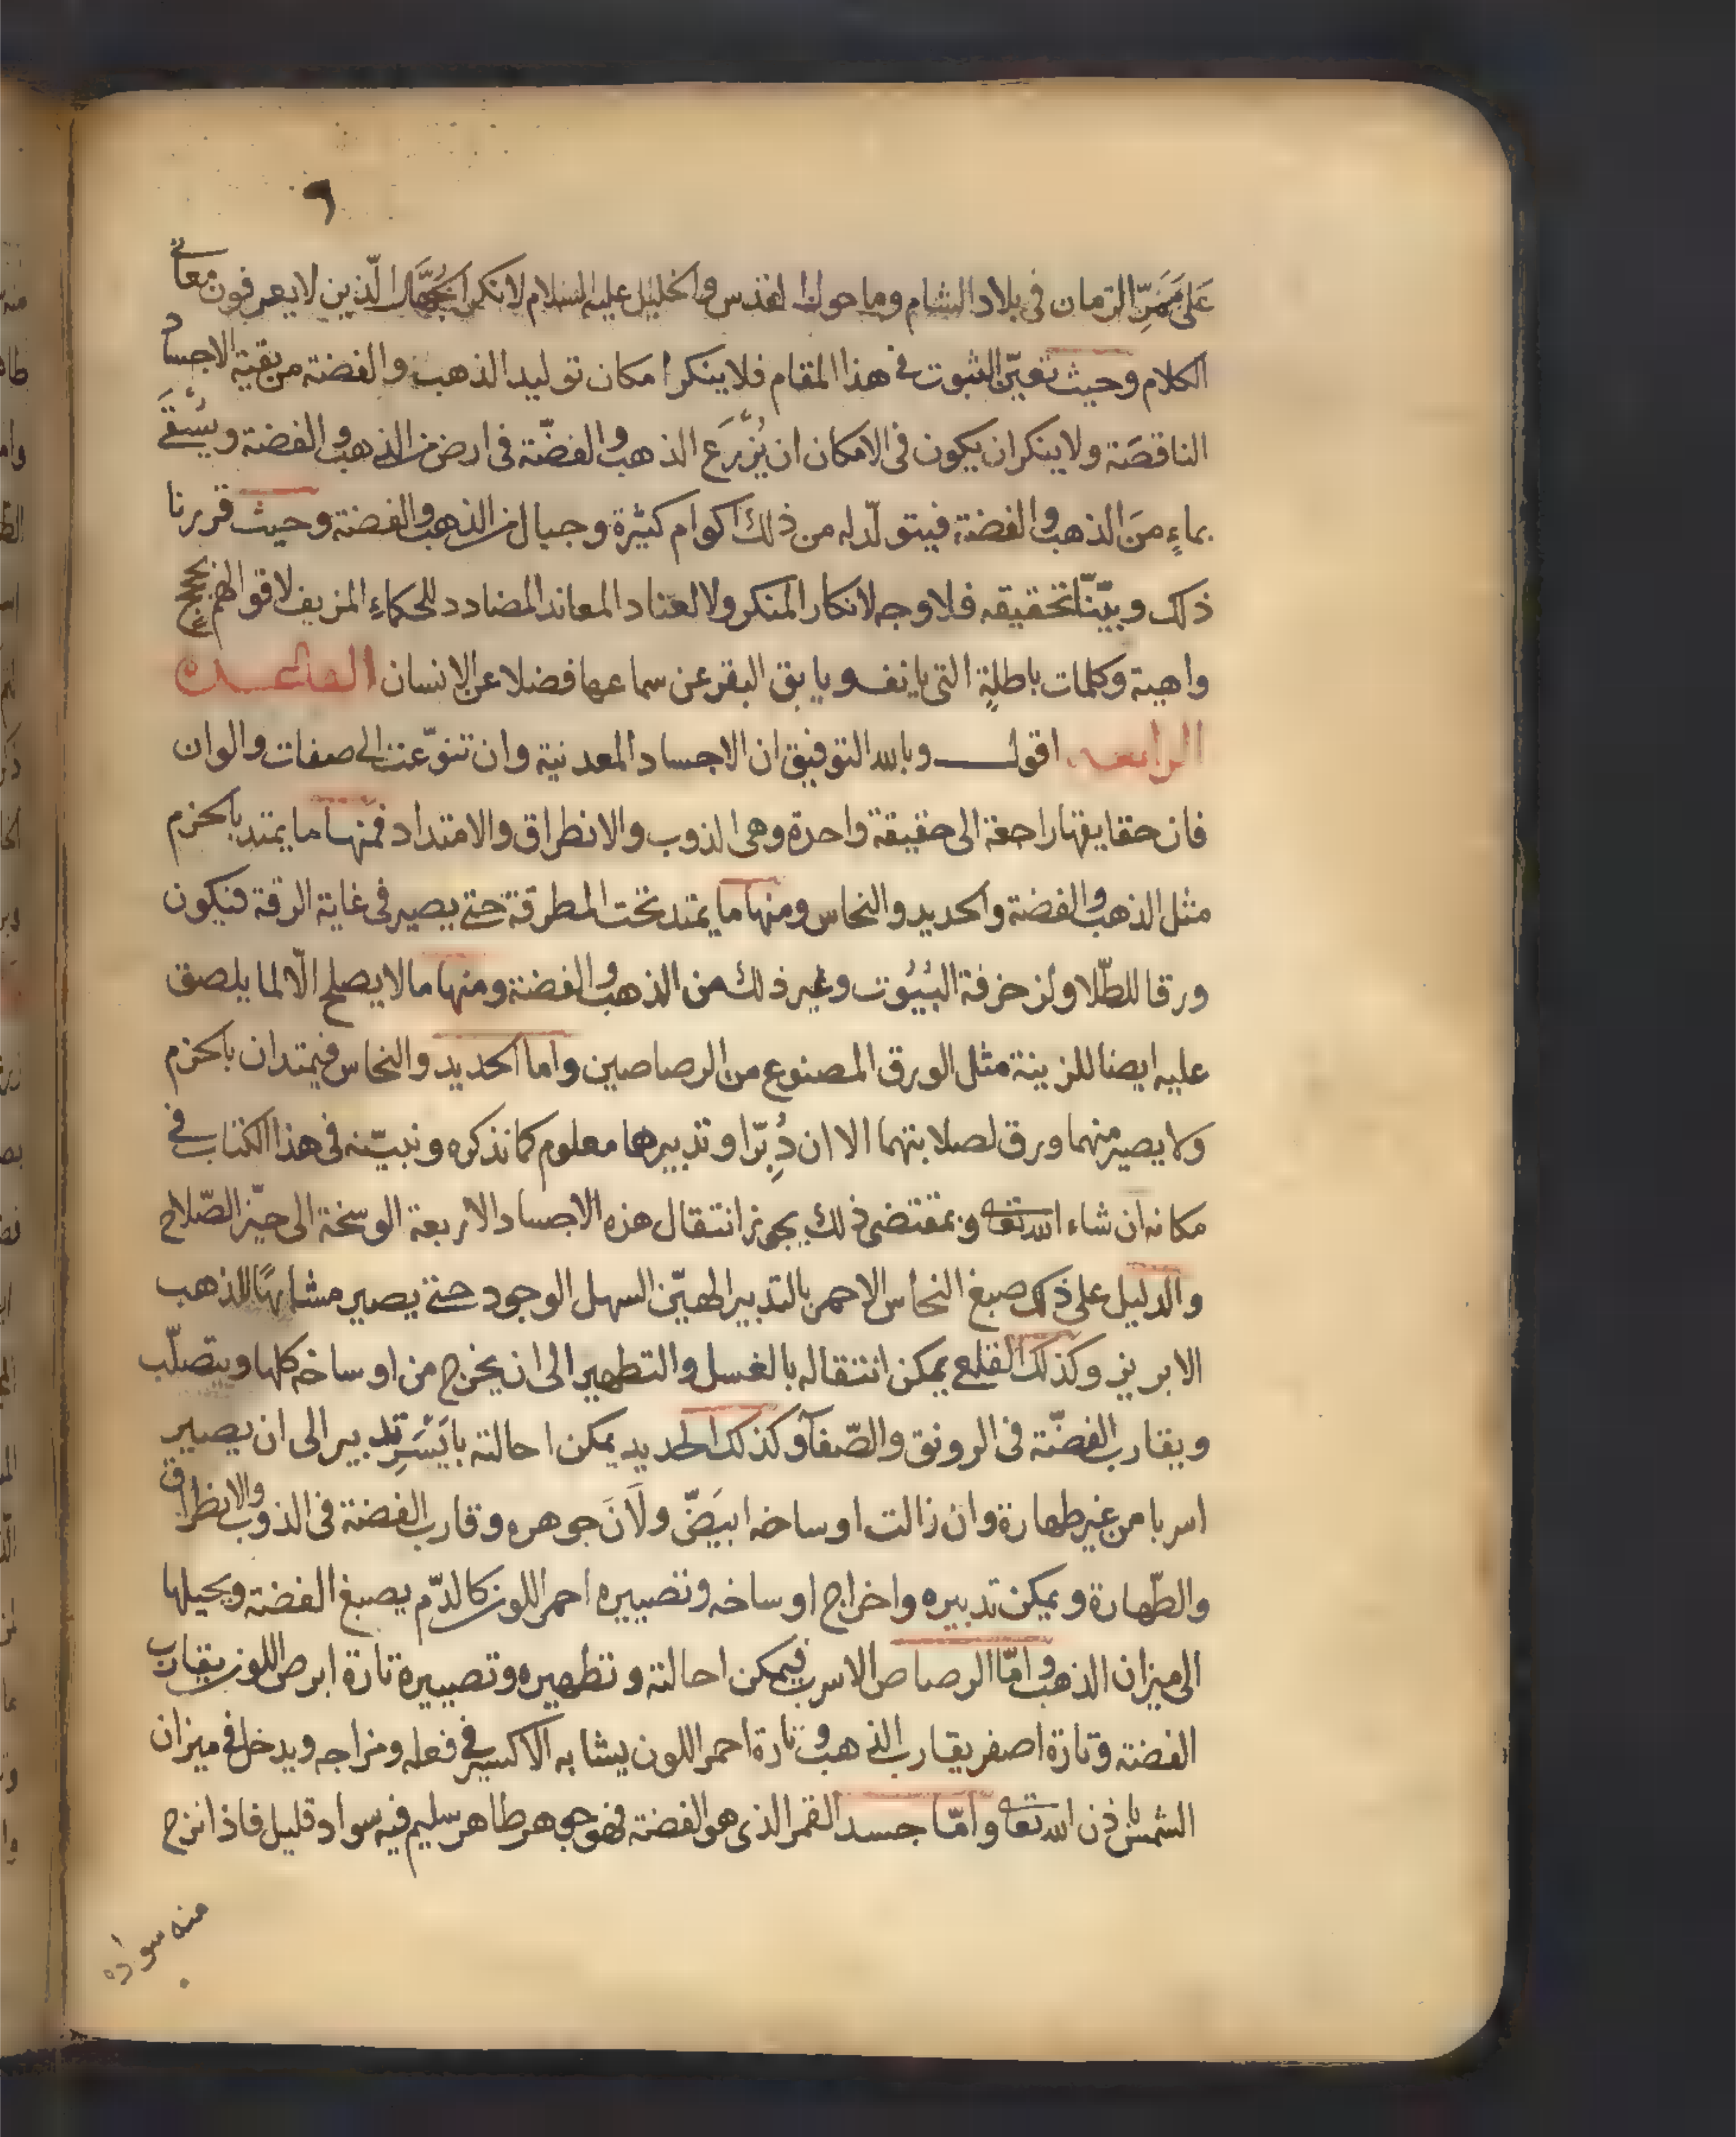 ٩
عَلى مَمَرِّ الزمان فى بلاد الشام وما حول القدس والخليل عليه السلام لانكر الجُهَّال الّذين لا يعرفون معانى
الكلام وحيث تعيّن الثبوت فى هذا المقام فلا ينكر امكان توليد الذهب والفضة من بقية الاجساد
الناقصَة ولا ينكر ان يكون فى الامكان ان يُزْرَعَ الذهب والفضّة فى ارض من الذهب والفضة ويُسْقَى
بماءٍ منَ الذهب والفضة فيتولّد له من ذلك اكوام كثيرة وجبال من الذهب والفضة وحيث قررنا
ذلك وبيّنّا تحقيقه فلا وجه لانكار المنكر ولا لعناد المعاند المضادد للحكماءِ المزيف لاقوالهم بحجج
واهية وكلمات باطلةٍ التى يانف ويابق البقر عن سماعها فضلا عن الانسان القاعدة
الرابعة اقول وبالله التوفيق ان الاجساد المعدنية وان تنوّعت الى صفات والوان
فان حقايقها راجعة الى حقيقة واحدة وهى الذوب والانطراق والامتداد فمنها ما يمتد بالخزم
مثل الذهب والفضة والحديد والنحاس ومنها ما يمتد تحت المطرقة حتى يصير فى غاية الرقة فتكون
ورقا للطّلا ولزخرفة البُيُوت وغير ذلك من الذهب والفضة ومنها ما لا يصلح الّا لما يلصق
عليه ايضا للزينة مثل الورق المصنوع من الرصاصين واما الحديد والنحاس فيمتدان بالخزم
ولا يصير منهما ورق لصلابتهما الا ان دُبِّرَا وتدبيرها معلوم كما نذكره ونبيّنه فى هذا الكتاب فى
مكانه ان شاء الله تعا وبمقتضى ذلك يجوز انتقال هذه الاجساد الاربعة الوسخة الى حيّز الصّلاح
والدليل على ذلك صبغ النحاس الاحمر بالتدبير الهيّن السهل الوجود حتى يصير مشابهًا للذهب
الابريز وكذلك القلعى يمكن انتقاله بالغسل والتطهير الى ان يخرج من اوساخه كلها ويتصلّب
ويقارب الفضّة فى الرونق والصّفآ وكذلك الحديد يمكن احالته بايْسَرِ تدبير الى ان يصير
اسربا من غير طهارة وان زالت اوساخه ابيَضّ ولَانَ جوهره وقارب الفضة فى الذوب والانطراق
والطّهارة ويمكن تدبيره واخراج اوساخه وتصييره احمر اللون كالدّم يصبغ الفضة ويحيلها
الى ميزان الذهب وامّا الرصاص الاسرب فيمكن احالته وتطهيره وتصييره تارة ابرص اللون يقارب
الفضة وتارة اصفر يقارب الذهب وتارة احمر اللون يشابه الاكسير فى فعله ومزاجه ويدخل فى ميزان
الشمس باذن الله تعا وامّا جسد القمر الذى هو الفضة فهو جوهر طاهر سليم فيه سواد قليل فاذا انزج
منه سواده